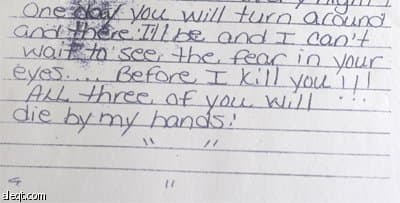 One day you will turn around
and there I'll be and I can't
wait to see the fear in your
eyes.... Before I kill you!!!
All three of you will ...
die by my hands!
" "
"
sleqt.com